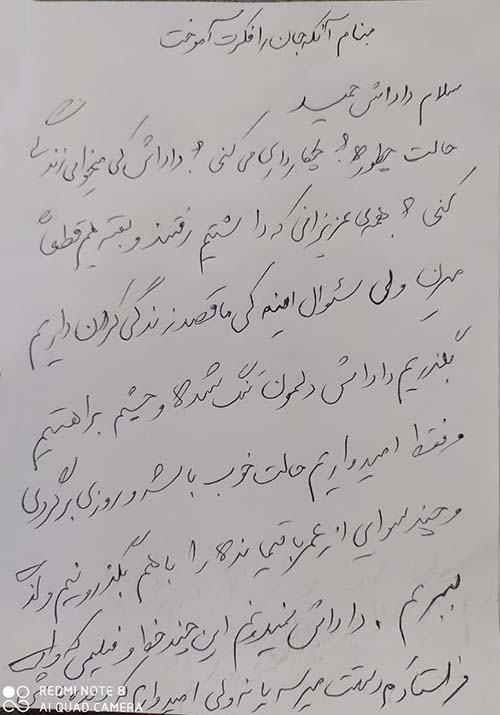 بنام آنکه جان را فکرت آموخت
سلام داداش حمید
حالت چطوره؟ چکار داری می کنی؟ داداش کی میخوای زندگی
کنی؟ همه ی عزیزانی که داشتیم رفتند و بقیه هم قطعاً
میرن ولی سئوال اینه کی ما قصد زندگی کردن داریم
بگذریم داداش دلمون تنگ شده و چشم براهتیم
و فقط امیدواریم حالت خوب باشه و روزی برگردی
و چند سوایی از عمر باقیمانده را با هم بگذرونیم و لذت
ببریم. داداش نمیدونم این چند خط و فیلمی که برای
فرستادم دستت میرسه یا نه ولی امیدوارم که
REDMI NOTE 8
AI QUAD CAMERA